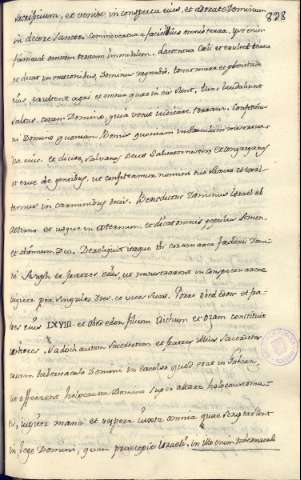 sacrificium, et venite in conspectu eius, et adorate Dominum 828
in decore sancto. Commoveatur a facie illius omnis terra, ipse enim
fundavit orbem terrarum immobilem. laetentur caeli et exultet terra
et dicant in nationibus, Dominus regnavit. tonet mare et plenitudo
eius, exultent agri et omnia quae in eis sunt. tunc laudabunt
saltus. coram Domino, quia venit iudicare terram. Confitemi
ni Domino quoniam bonus quoniam in aeternum misericor
dia eius. et dicite, salva nos Deus salvator noster et congrega nos
et erue de gentibus, ut confiteamur nomini tuo sancto et exul
temus in carminibus tuis. Benedictus Dominus Israel ab
aeterno et usque in aeternum et dicat omnis populus Amen
et hymnum Deo. Dereliquit itaque ibi coram arca foederis Domi
ni Asaph et fratres eius, ut ministrarent in conspectu arcae
iugiter per singulos dies et vices suas. Porro Obededom et fra
tres eius LXVIII et Obededom filium Idithun et Ozam constituit
ianitores. Sadoch autem sacerdotem et fratres illius sacerdotes
coram tabernaculo Domini in excelso quod erat in Gabaon,
ut offerrent holocausta Domino super altare
iugiter mane et vespere iuxta omnia quae scripta sunt
in lege Domini, quam praecepit Israeli. in illo enim tabernaculo